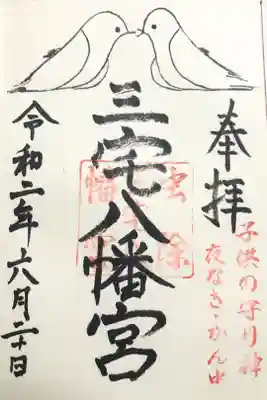 奉拝
子供の守り神
夜なき・かん虫
三宅八幡宮
虫除
八幡
令和二年六月二十日